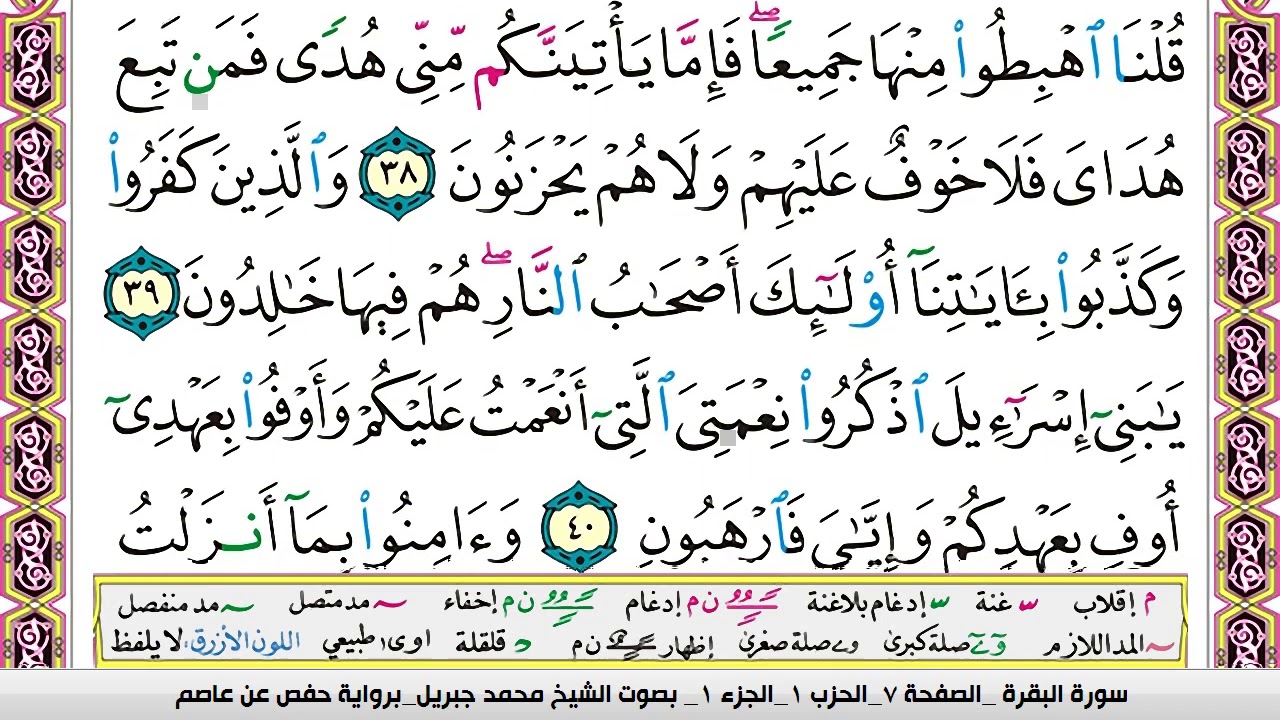 قُلْنَا ٱهْبِطُوا۟ مِنْهَا جَمِيعًۭا ۖ فَإِمَّا يَأْتِيَنَّكُم مِّنِّى هُدًۭى فَمَن تَبِعَ
هُدَاىَ فَلَا خَوْفٌ عَلَيْهِمْ وَلَا هُمْ يَحْزَنُونَ ٣٨ وَٱلَّذِينَ كَفَرُوا۟
وَكَذَّبُوا۟ بِـَٔايَـٰتِنَآ أُو۟لَـٰٓئِكَ أَصْحَـٰبُ ٱلنَّارِ ۖ هُمْ فِيهَا خَـٰلِدُونَ ٣٩
يَـٰبَنِىٓ إِسْرَٰٓءِيلَ ٱذْكُرُوا۟ نِعْمَتِىَ ٱلَّتِىٓ أَنْعَمْتُ عَلَيْكُمْ وَأَوْفُوا۟ بِعَهْدِىٓ
أُوفِ بِعَهْدِكُمْ وَإِيَّـٰىَ فَٱرْهَبُونِ ٤٠ وَءَامِنُوا۟ بِمَآ أَنزَلْتُ
م إقلاب س غنة س إدغام بلاغنة ن م إدغام ن م إخفاء مد متصل مد منفصل
المد اللازم و ے صلة كبرى و ے صلة صغرى إظهار ن م د قلقلة اوى طبيعي اللون الأزرق: لا يلفظ
سورة البقرة _الصفحة ٧_الحزب ١_الجزء ١_ بصوت الشيخ محمد جبريل_برواية حفص عن عاصم